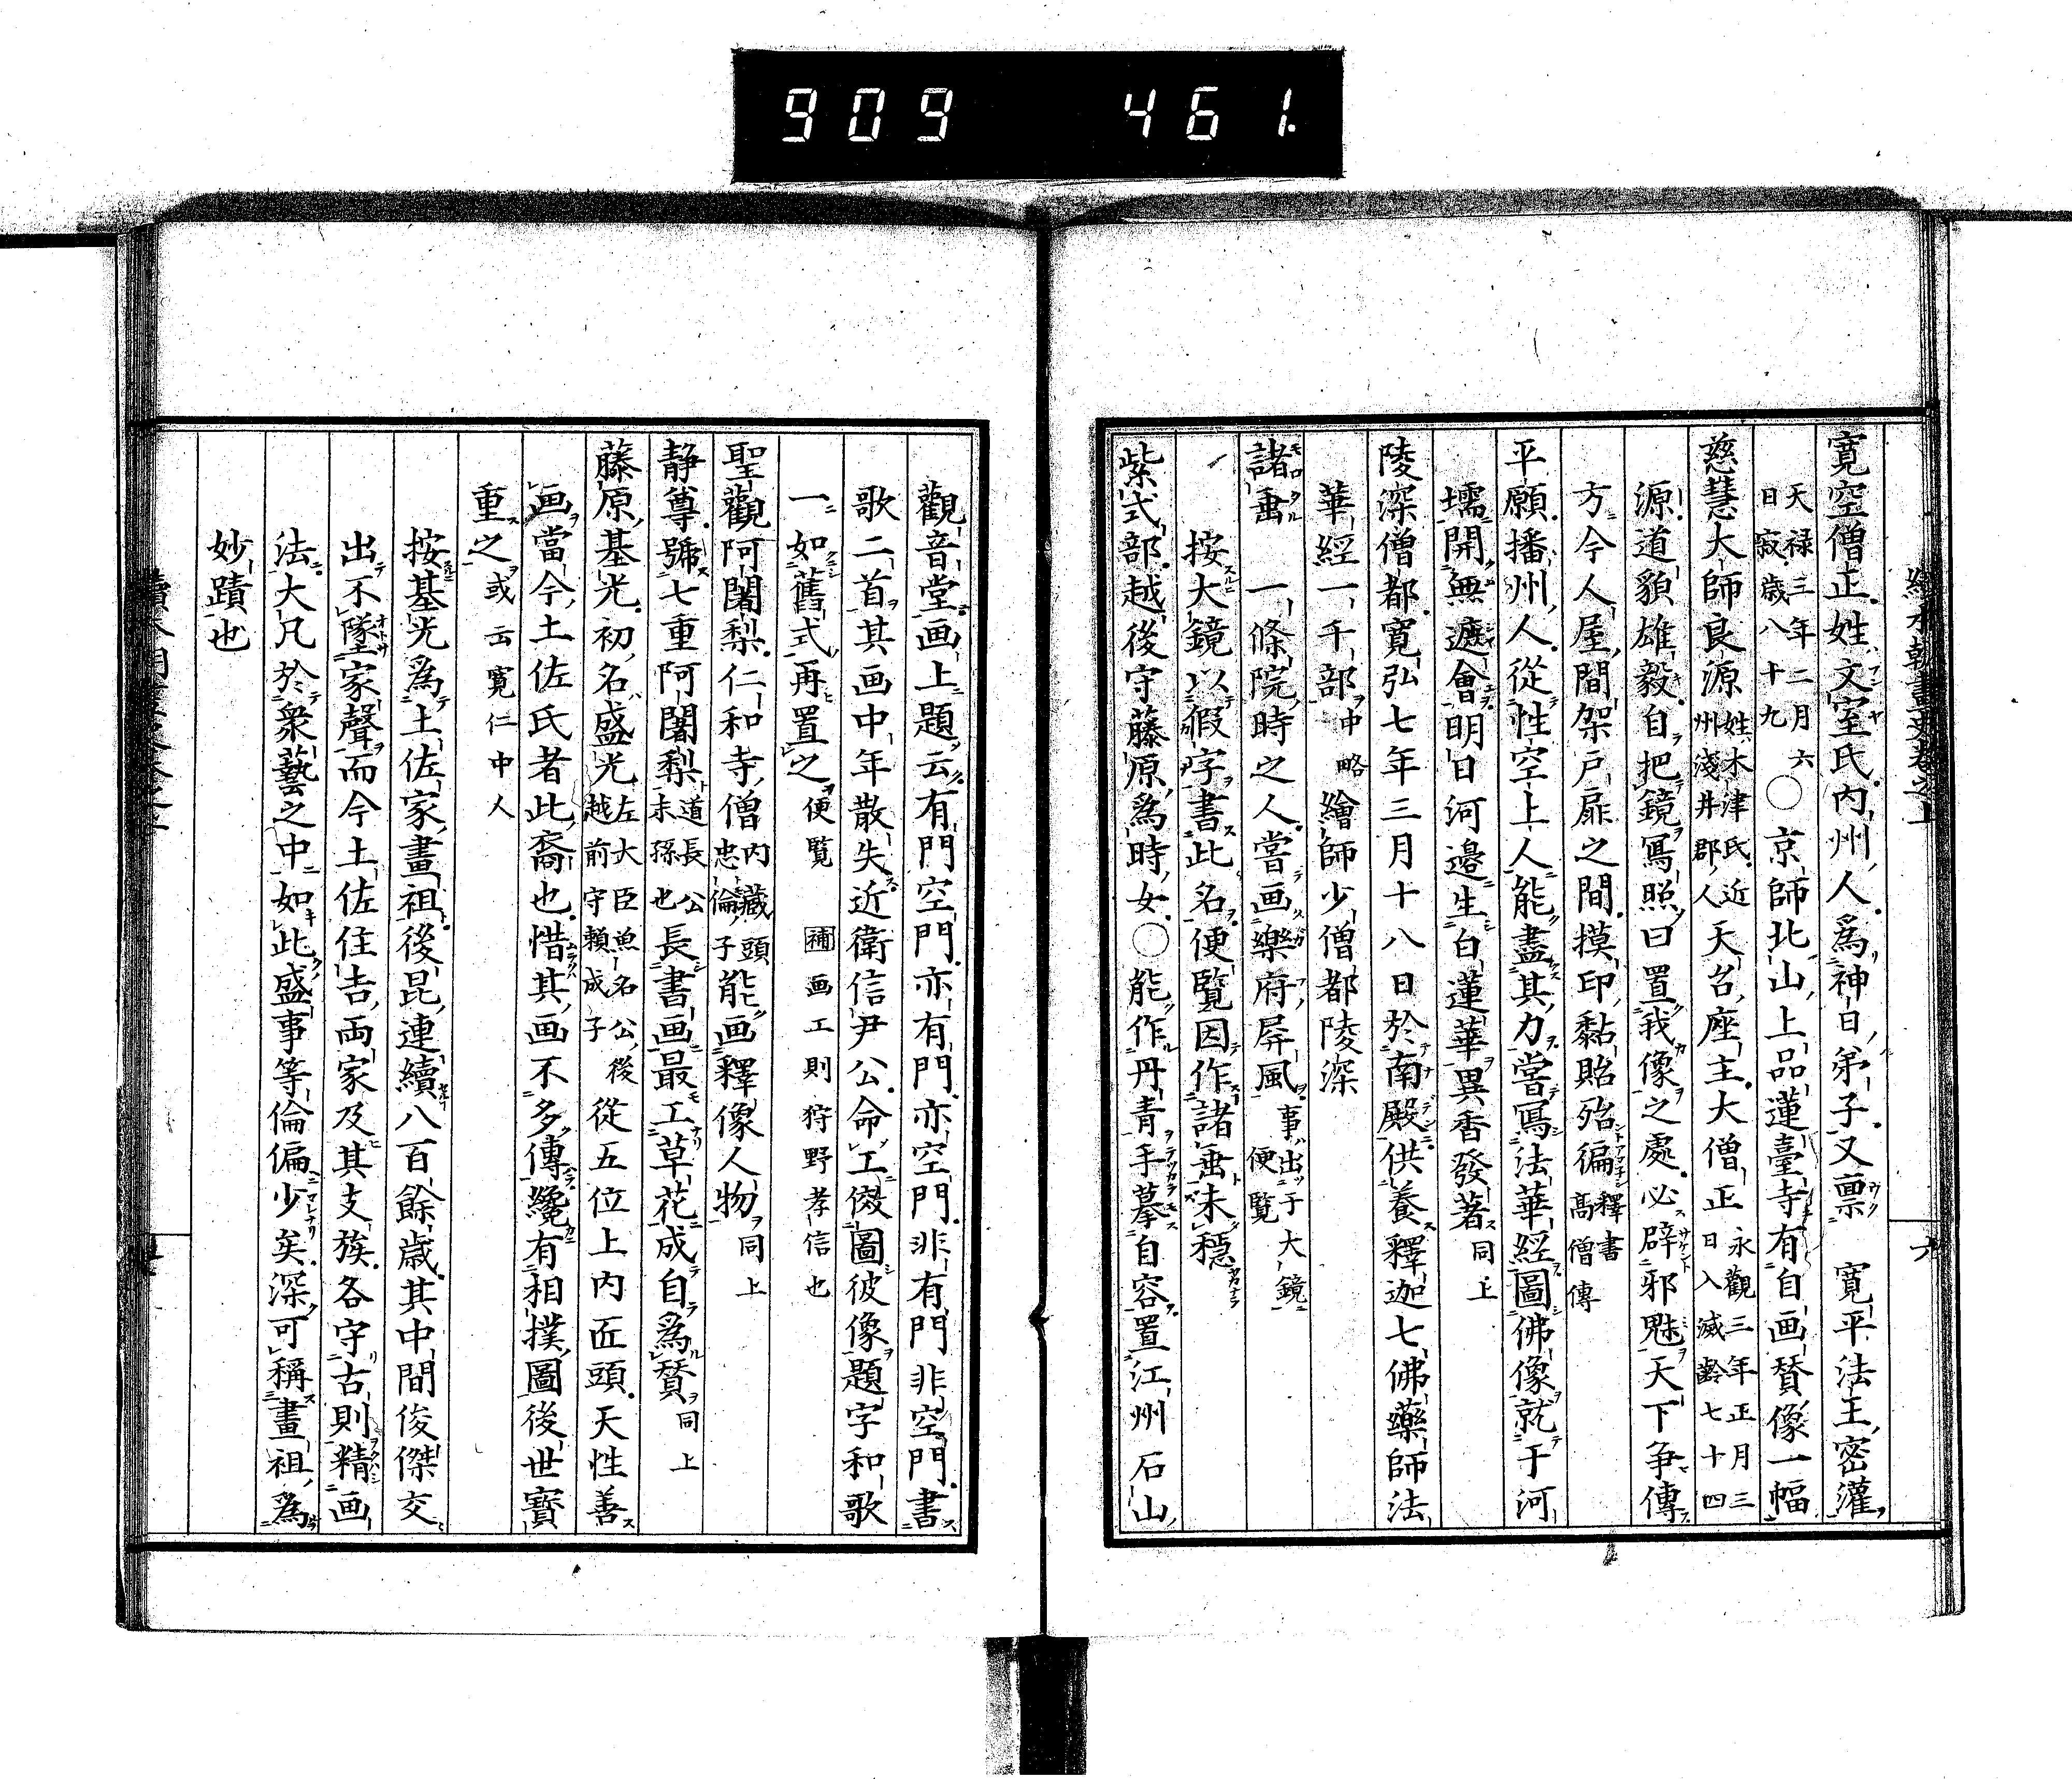 909 461.
續本朝畫史卷之上
九
寛空僧正姓文室氏内州人爲神日弟子又禀　寛平法王密灌
天禄三年二月六日寂歳八十九〇京師北山上品蓮臺寺有自画賛像一幅
慈慧大師良源姓木津氏近州淺井郡人天台座主大僧正永觀三年正月三日入滅齡七十四
源道貌雄毅自把鏡寫照曰置我像之處必辟邪魅天下争傳
方今人屋間架戸扉之間摸印黏貼殆徧釋書高僧傳
平願播州人從性空上人能盡其力嘗寫法華經圖佛像就于河
壖開無遮會明日河邉生白蓮華異香發著同上
陵深僧都寛弘七年三月十八日於南殿供養釋迦七佛藥師法
華經一千部中略繪師少僧都陵深
諸乗　一條院時之人嘗画樂府屏風事出于大鏡便覧
按大鏡以假字書此名便覧因作諸乗未穩
紫式部越後守藤原爲時女〇能作丹青手摹自容置江州石山
觀音堂画上題云有門空門亦有門亦空門非有門非空門書
歌二首其画中年散失近衛信尹公命工倣圖彼像題字和歌
一如舊式再置之便覧　補画工則狩野孝信也
聖觀阿闍梨仁和寺僧内藏頭忠倫子能画釋像人物同上
静尊號七重阿闍梨道長公末孫也長書画最工草花成自爲賛同上
藤原基光初名盛光左大臣魚名公後越前守頼成子從五位上内匠頭天性善
画當今土佐氏者此裔也惜其画不多傳纔有相撲圖後世寳
重之或云寛仁中人
按基光爲土佐家畫祖後昆連續八百餘歳其中間俊傑交
出不墜家聲而今土佐住吉両家及其支族各守古則精画
法大凡於衆藝之中如此盛事等倫偏少矣深可稱畫祖爲
妙蹟也